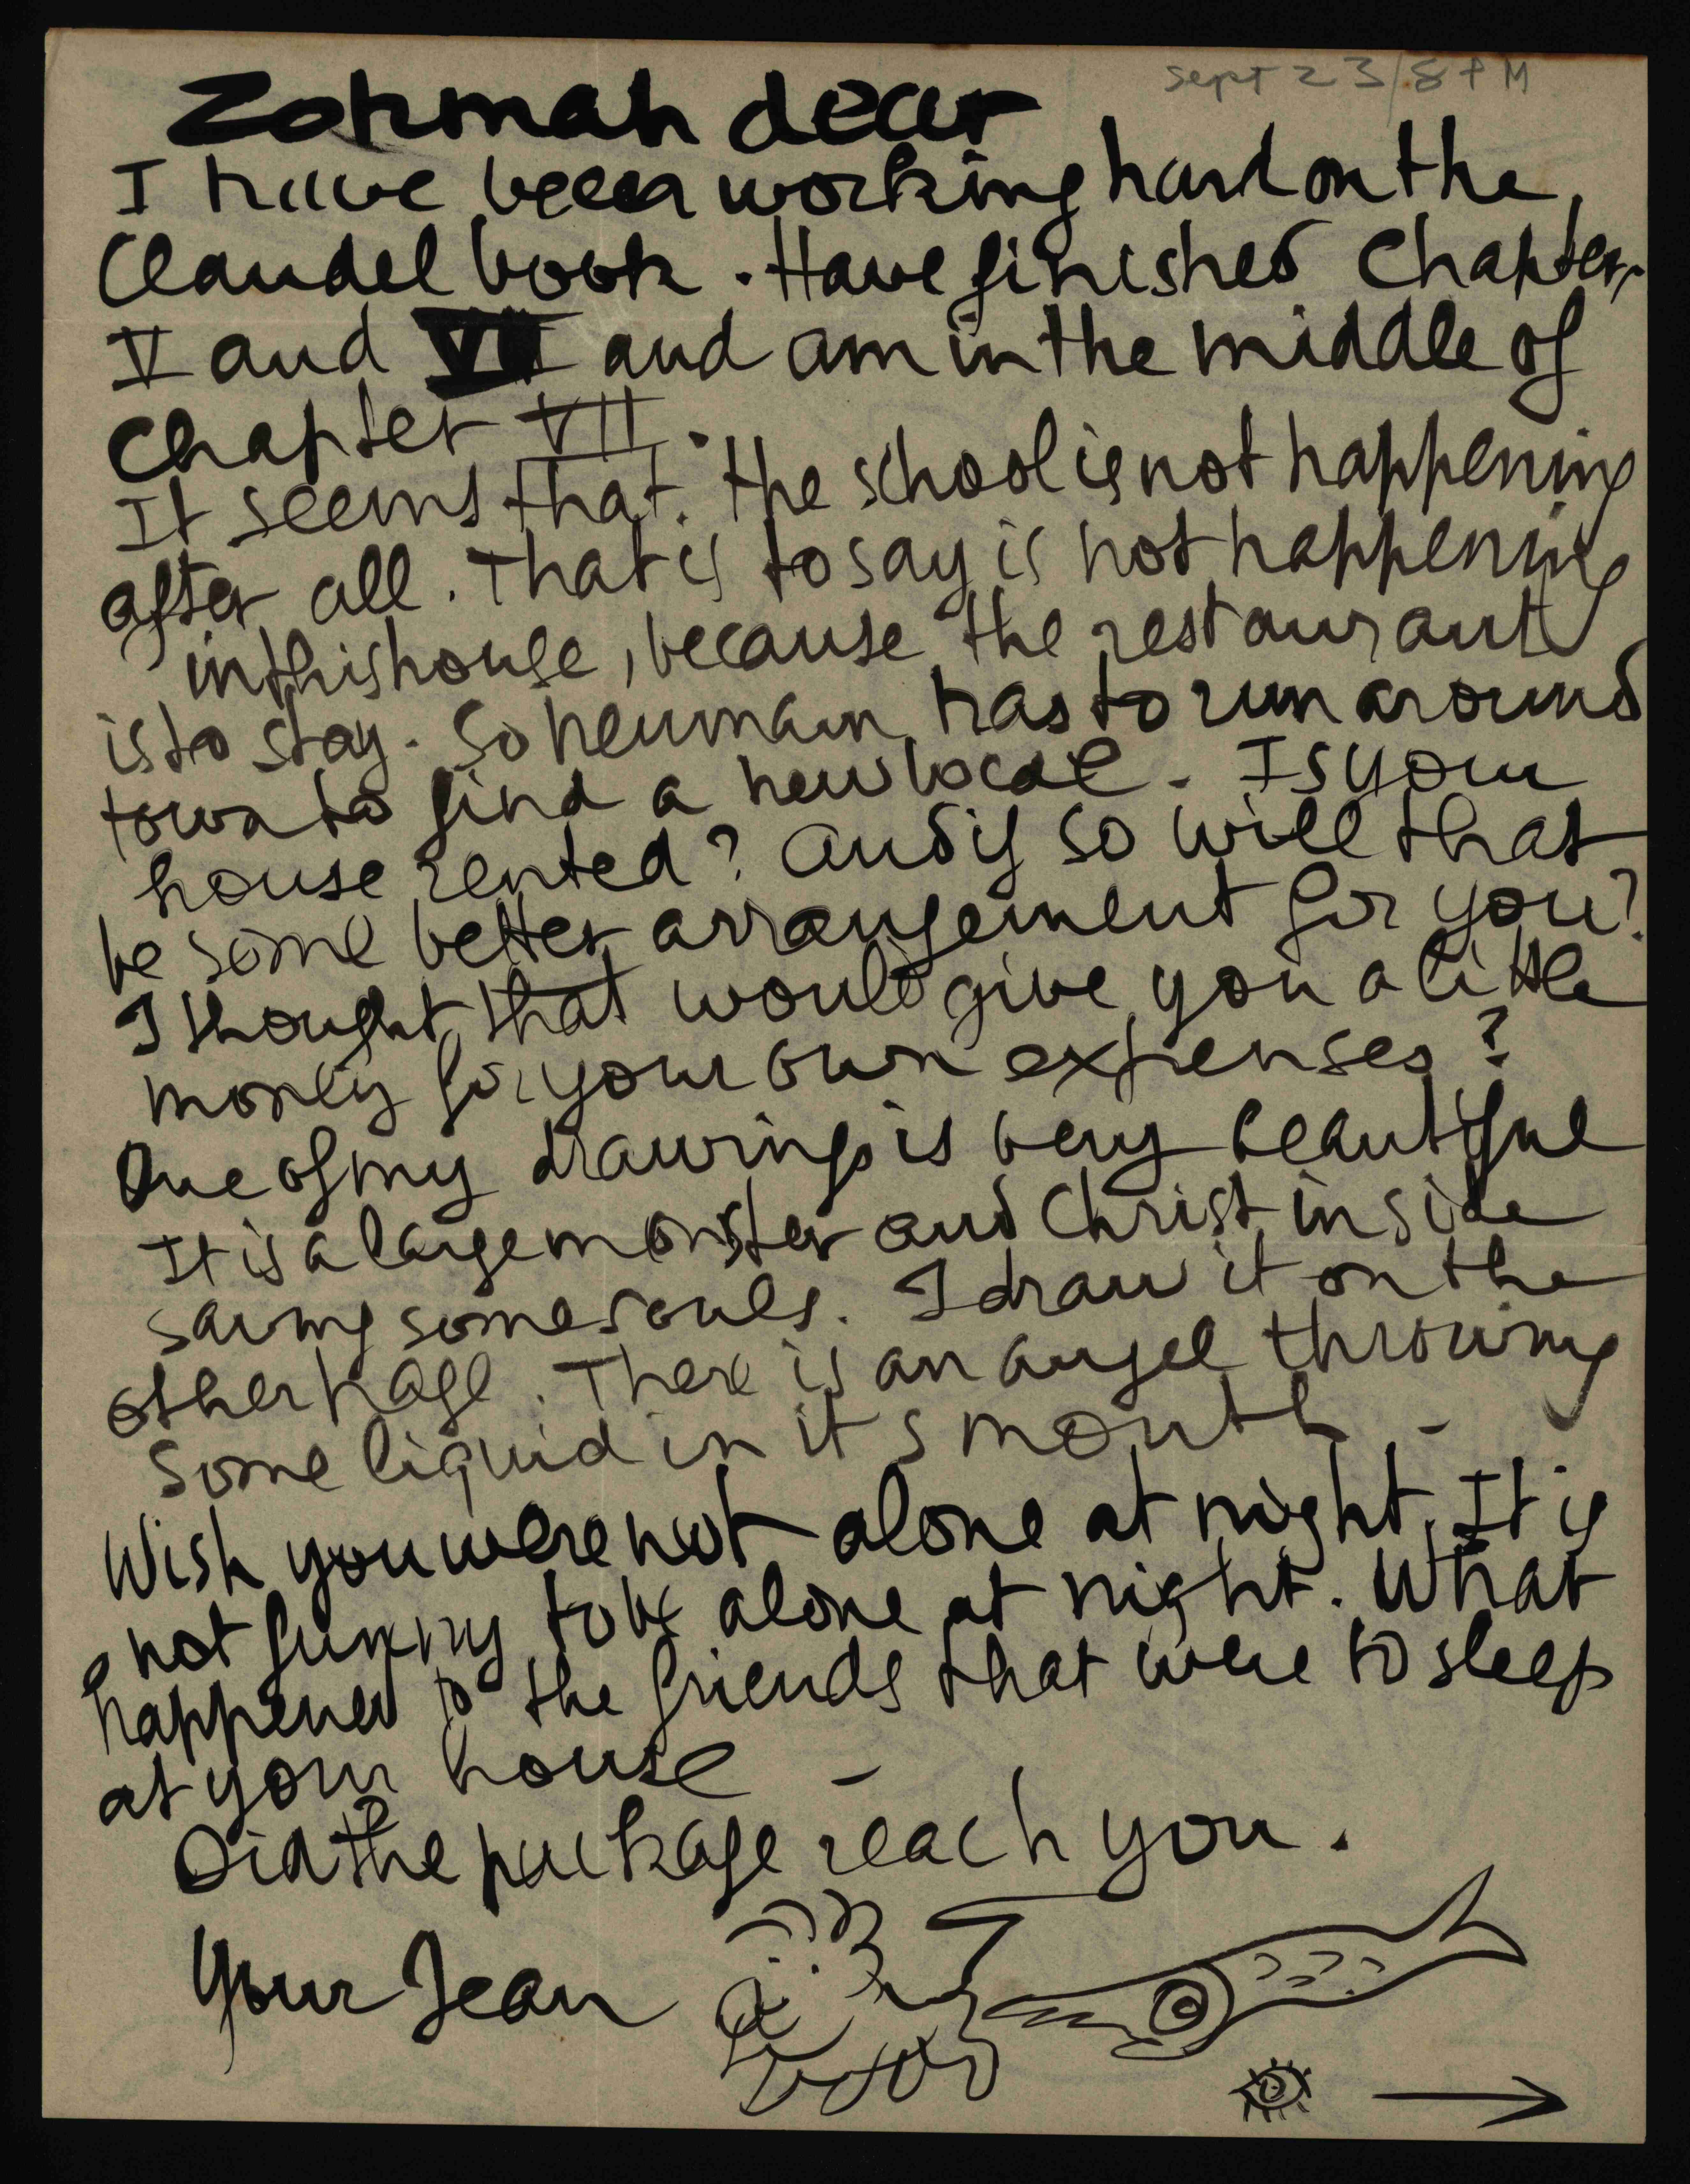 sept 23/8 PM
Zohmah dear
I have been working hard on the
Claudel book. Have finished Chapters
V and VI and am in the middle of
Chapter VII.
It seems that the school is not happening
after all. That is to say is not happening
in this house, because the restaurant
is to stay. So Neumann has to run around
town to find a new local. Is your
house rented? and if so will that
be some better arrangement for you?
I thought that would give you a little
money for your own expenses?
One of my drawings is very beautiful
It is a large monster and Christ inside
saving some souls. I draw it on the
other page. There is an angel throwing
some liquid in its mouth -
Wish you were not alone at night. It is
not funny to be alone at night. What
happened to the friends that were to sleep
at your house -
Did the package reach you.
Your Jean